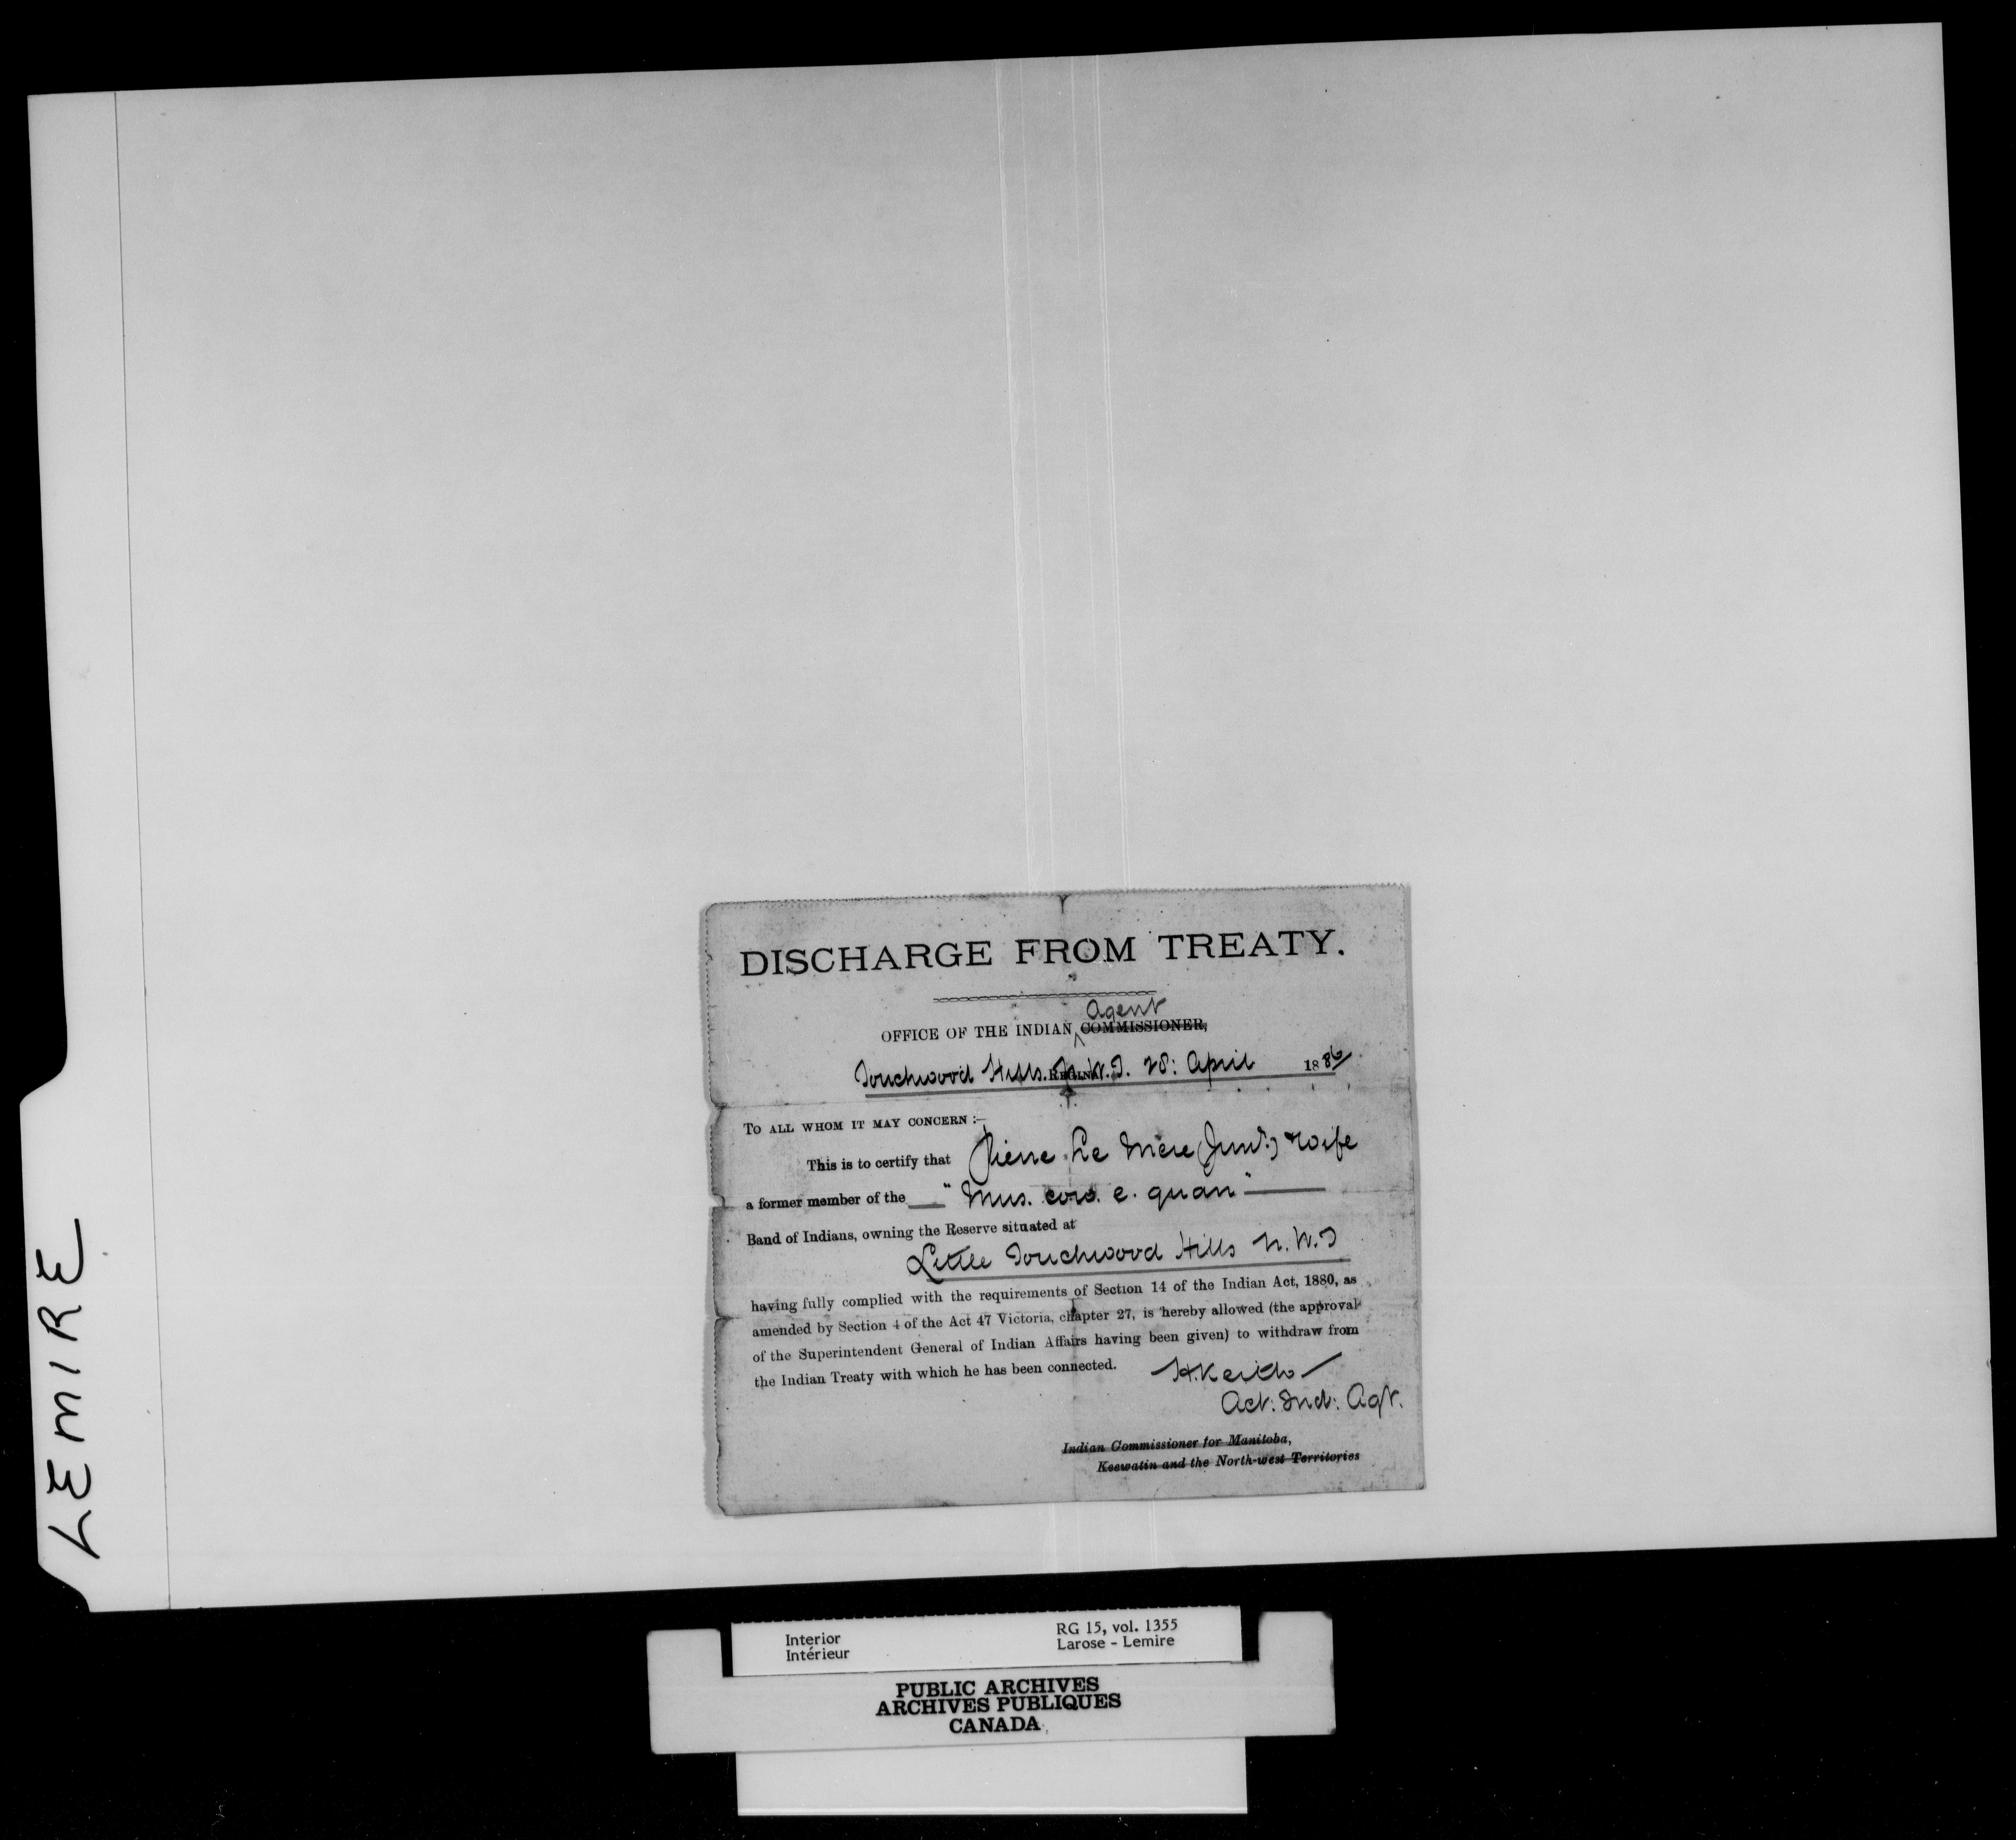 LEMIRE
DISCHARGE FROM TREATY.
Agent
OFFICE OF THE INDIAN ^ COMMISSIONER,
Touchwood Hills. N.W.T. 28: April 1886
REGINA
TO ALL WHOM IT MAY CONCERN :—
This is to certify that Pierre Le Mere (Junr.) & wife
a former member of the — "Mus. cow. e. quan" —
Band of Indians, owning the Reserve situated at
Little Touchwood Hills N.W.T
having fully complied with the requirements of Section 14 of the Indian Act, 1880, as
amended by Section 4 of the Act 47 Victoria, chapter 27, is hereby allowed (the approval
of the Superintendent General of Indian Affairs having been given) to withdraw from
the Indian Treaty with which he has been connected.
H. Keith
Act: Ind: Agt.
Indian Commissioner for Manitoba,
Keewatin and the North-west Territories
Interior
Intérieur
RG 15, vol. 1355
Larose - Lemire
PUBLIC ARCHIVES
ARCHIVES PUBLIQUES
CANADA